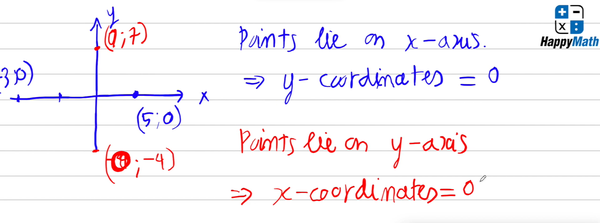 y
(0;7)
-3;0)
x
(5;0)
(0;-4)
Points lie on x-axis.
⇒ y-coordinates = 0
Points lie on y-axis
⇒ x-coordinates=0
HappyMath